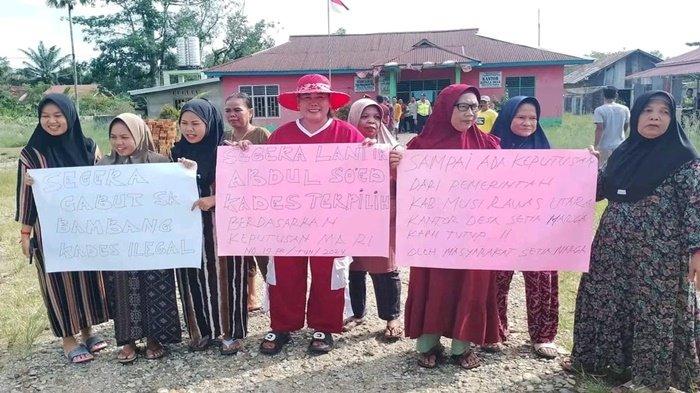 SEGERA
CABUT SK
BAMBANG
KADES ILEGAL
SEGERA LANTIK
ABDUL SO'ED
KADES TERPILIH
BERDASARKAN
KEPUTUSAN MA RI
SAMPAI ADA KEPUTUSAN
DARI PEMERINTAH
KAB. MUSI RAWAS UTARA
KANTOR DESA SETIA MARGA
KAMI TUTUP !!
OLEH MASYARAKAT SETIA MARGA
KANTOR